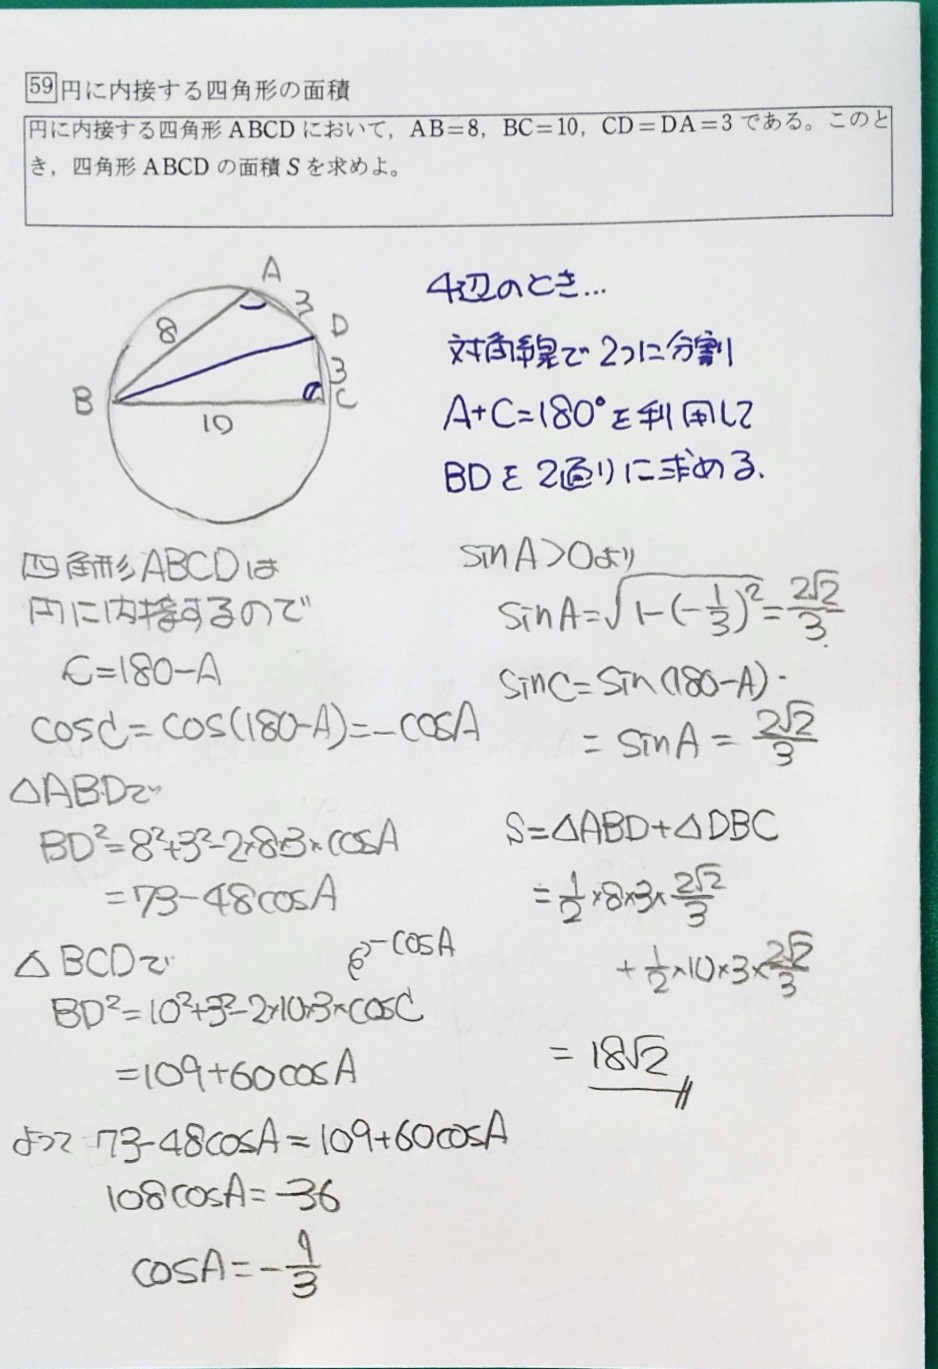 59 円に内接する四角形の面積
円に内接する四角形 ABCD において，AB=8，BC=10，CD=DA=3 である。このと
き，四角形 ABCD の面積 S を求めよ。
A
3
8
D
3
B
C
10
4辺のとき…
対角線で2つに分割
A+C=180°を利用して
BDを2通りに求める.
四角形ABCDは
円に内接するので
C=180-A
cosC=cos(180-A)=-cosA
△ABDで
BD²=8²+3²-2×8×3×cosA
=73-48cosA
△BCDで
-cosA
BD²=10²+3²-2×10×3×cosC
=109+60cosA
よって 73-48cosA=109+60cosA
108cosA=-36
cosA=-1/3
sinA>0より
sinA=√(1-(-1/3)²)=2√2/3
sinC=sin(180-A)
=sinA=2√2/3
S=△ABD+△DBC
=1/2×8×3×2√2/3
+1/2×10×3×2√2/3
=18√2